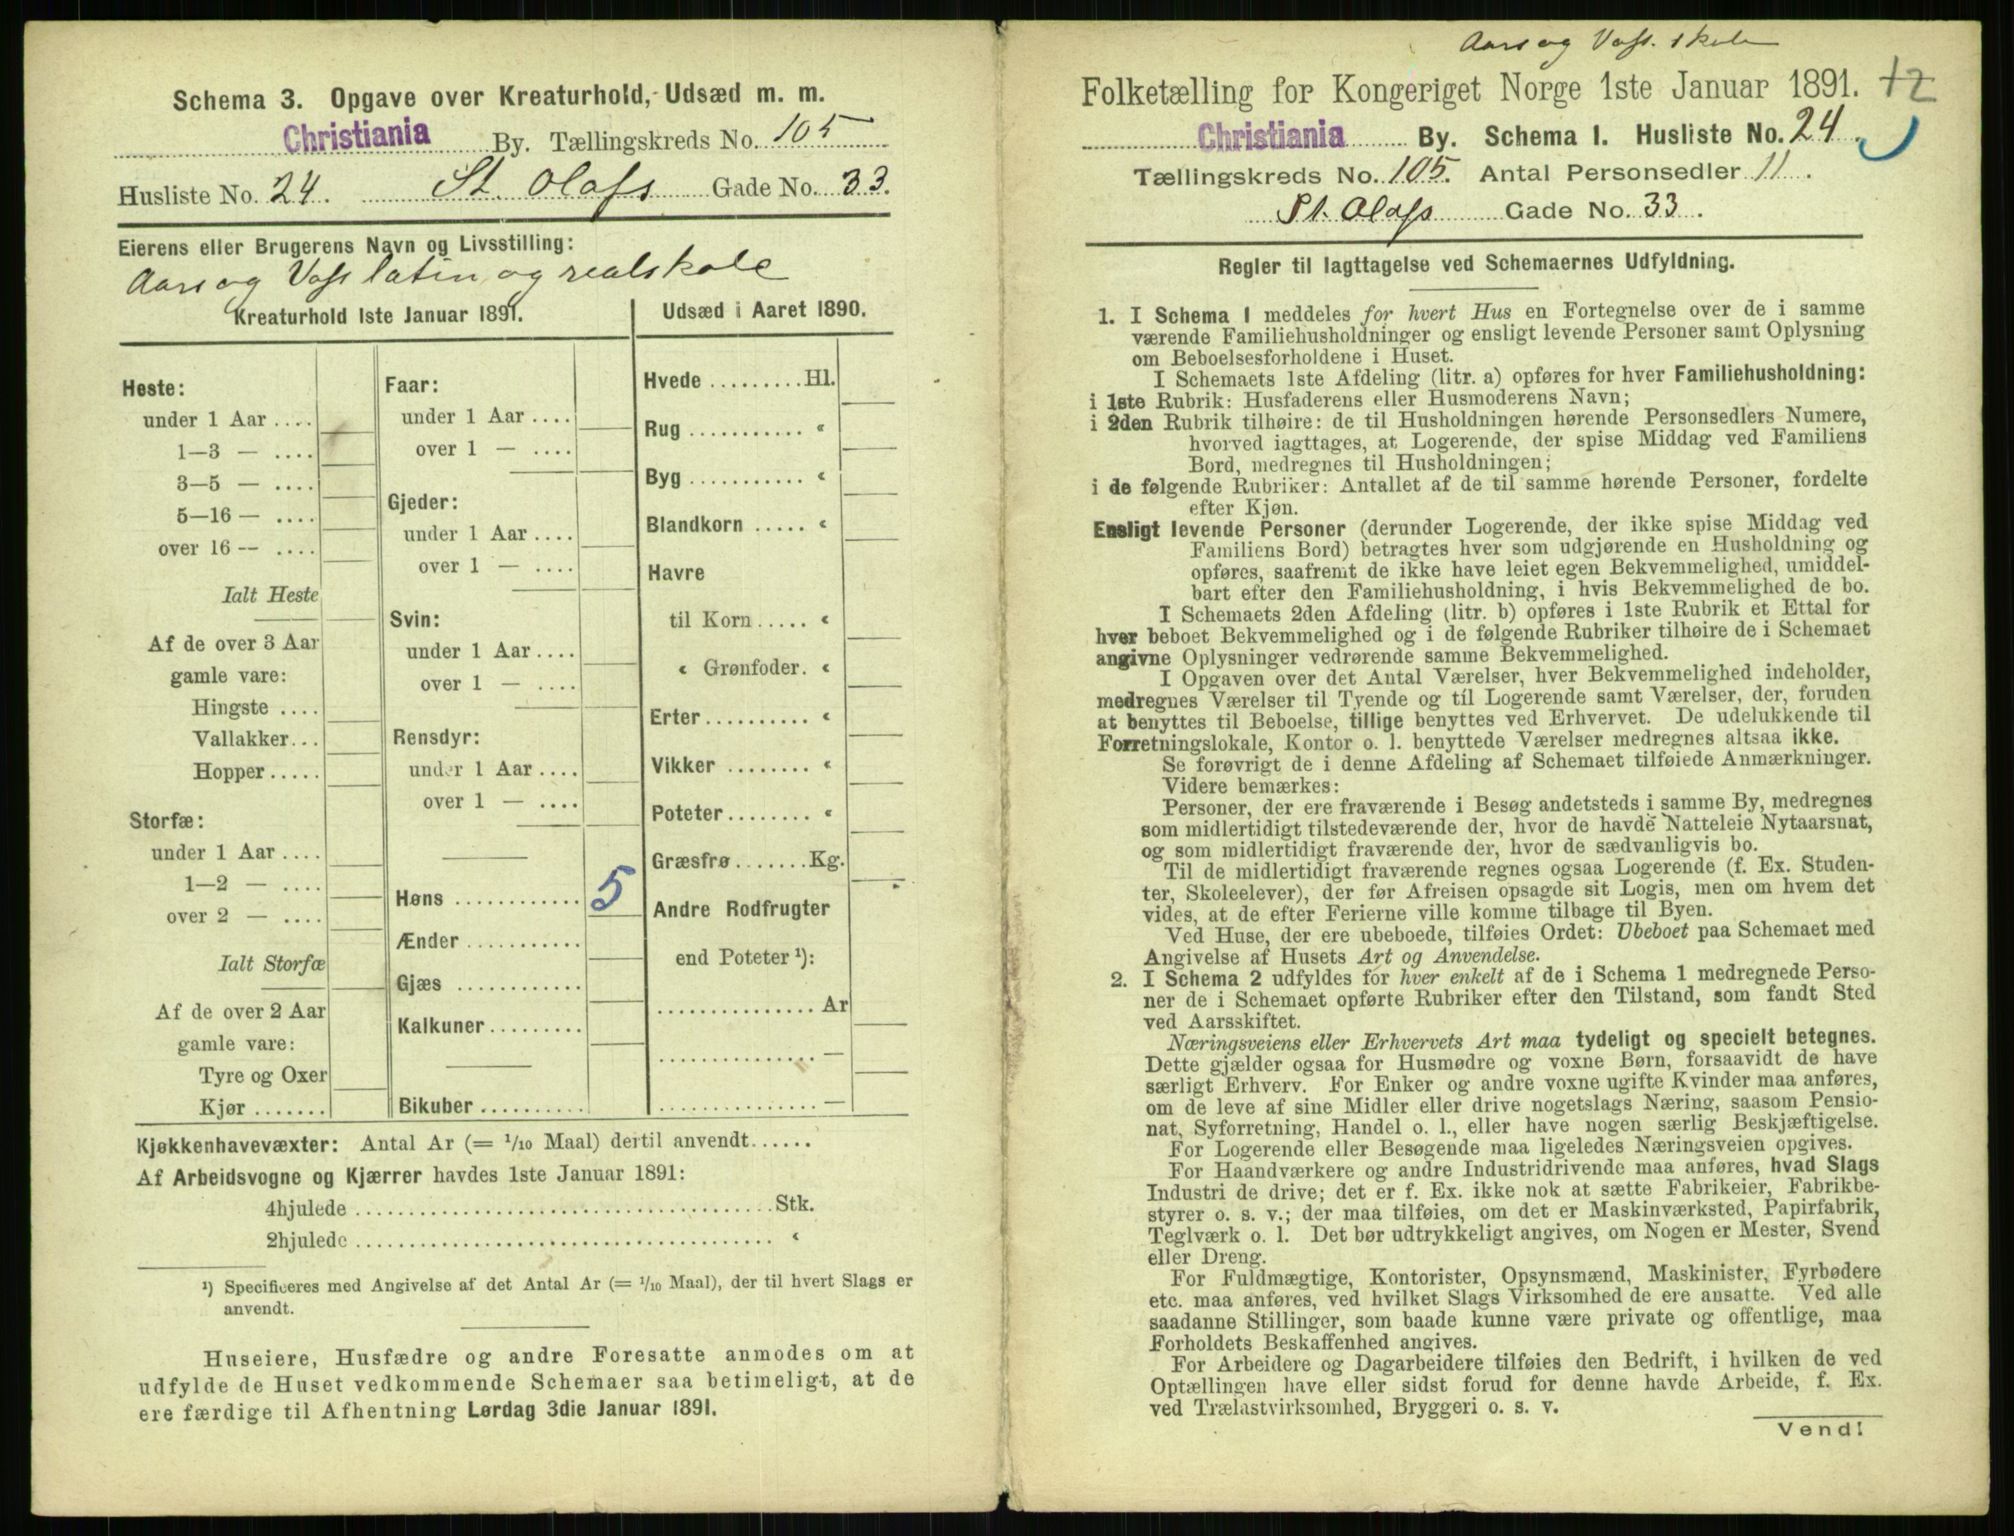 Schema 3. Opgave over Kreaturhold, Udsæd m. m.
Christiania By. Tællingskreds No. 105
Husliste No. 24. St. Olafs Gade No. 33.
Eierens eller Brugerens Navn og Livsstilling:
Aars og Voss latin og realskole
Kreaturhold 1ste Januar 1891.
Heste:
under 1 Aar ....
1—3 — ....
3—5 — ....
5—16 — ....
over 16 — ....
Ialt Heste
Af de over 3 Aar
gamle vare:
Hingste ....
Vallakker...
Hopper.....
Storfæ:
under 1 Aar ....
1—2 — ....
over 2 — ....
Ialt Storfæ
Af de over 2 Aar
gamle vare:
Tyre og Oxer
Kjør .......
Faar:
under 1 Aar ....
over 1 — ....
Gjeder:
under 1 Aar ....
over 1 — ....
Svin:
under 1 Aar ....
over 1 — ....
Rensdyr:
under 1 Aar ....
over 1 — ....
Høns ............ 5
Ænder ...........
Gjæs ............
Kalkuner.........
Bikuber ..........
Udsæd i Aaret 1890.
Hvede .........Hl.
Rug ........... «
Byg ........... «
Blandkorn ..... «
Havre
til Korn ..... «
« Grønfoder. «
Erter.......... «
Vikker ........ «
Poteter........ «
Græsfrø .......Kg.
Andre Rodfrugter
end Poteter ¹):
............... Ar
............... —
............... —
Kjøkkenhavevæxter: Antal Ar (= 1/10 Maal) dertil anvendt......
Af Arbeidsvogne og Kjærrer havdes 1ste Januar 1891:
4hjulede ........................................Stk.
2hjulede ........................................ «
¹) Specificeres med Angivelse af det Antal Ar (= 1/10 Maal), der til hvert Slags er
anvendt.
Huseiere, Husfædre og andre Foresatte anmodes om at
udfylde de Huset vedkommende Schemaer saa betimeligt, at de
ere færdige til Afhentning Lørdag 3die Januar 1891.
Aars og Voss. skole
Folketælling for Kongeriget Norge 1ste Januar 1891. 12
Christiania By. Schema I. Husliste No. 24.
Tællingskreds No. 105. Antal Personsedler 11.
St. Olafs Gade No. 33.
Regler til Iagttagelse ved Schemaernes Udfyldning.
1. I Schema 1 meddeles for hvert Hus en Fortegnelse over de i samme
værende Familiehusholdninger og ensligt levende Personer samt Oplysning
om Beboelsesforholdene i Huset.
I Schemaets 1ste Afdeling (litr. a) opføres for hver Familiehusholdning:
i 1ste Rubrik: Husfaderens eller Husmoderens Navn;
i 2den Rubrik tilhøire: de til Husholdningen hørende Personsedlers Numere,
hvorved iagttages, at Logerende, der spise Middag ved Familiens
Bord, medregnes til Husholdningen;
i de følgende Rubriker: Antallet af de til samme hørende Personer, fordelte
efter Kjøn.
Ensligt levende Personer (derunder Logerende, der ikke spise Middag ved
Familiens Bord) betragtes hver som udgjørende en Husholdning og
opføres, saafremt de ikke have leiet egen Bekvemmelighed, umiddel-
bart efter den Familiehusholdning, i hvis Bekvemmelighed de bo.
I Schemaets 2den Afdeling (litr. b) opføres i 1ste Rubrik et Ettal for
hver beboet Bekvemmelighed og i de følgende Rubriker tilhøire de i Schemaet
angivne Oplysninger vedrørende samme Bekvemmelighed.
I Opgaven over det Antal Værelser, hver Bekvemmelighed indeholder,
medregnes Værelser til Tyende og til Logerende samt Værelser, der, foruden
at benyttes til Beboelse, tillige benyttes ved Erhvervet. De udelukkende til
Forretningslokale, Kontor o. l. benyttede Værelser medregnes altsaa ikke.
Se forøvrigt de i denne Afdeling af Schemaet tilføiede Anmærkninger.
Videre bemærkes:
Personer, der ere fraværende i Besøg andetsteds i samme By, medregnes
som midlertidigt tilstedeværende der, hvor de havde Natteleie Nytaarsnat,
og som midlertidigt fraværende der, hvor de sædvanligvis bo.
Til de midlertidigt fraværende regnes ogsaa Logerende (f. Ex. Studen-
ter, Skoleelever), der før Afreisen opsagde sit Logis, men om hvem det
vides, at de efter Ferierne ville komme tilbage til Byen.
Ved Huse, der ere ubeboede, tilføies Ordet: Ubeboet paa Schemaet med
Angivelse af Husets Art og Anvendelse.
2. I Schema 2 udfyldes for hver enkelt af de i Schema 1 medregnede Perso-
ner de i Schemaet opførte Rubriker efter den Tilstand, som fandt Sted
ved Aarsskiftet.
Næringsveiens eller Erhvervets Art maa tydeligt og specielt betegnes.
Dette gjælder ogsaa for Husmødre og voxne Børn, forsaavidt de have
særligt Erhverv. For Enker og andre voxne ugifte Kvinder maa anføres,
om de leve af sine Midler eller drive nogetslags Næring, saasom Pensio-
nat, Syforretning, Handel o. l., eller have nogen særlig Beskjæftigelse.
For Logerende eller Besøgende maa ligeledes Næringsveien opgives.
For Haandværkere og andre Industridrivende maa anføres, hvad Slags
Industri de drive; det er f. Ex. ikke nok at sætte Fabrikeier, Fabrikbe-
styrer o. s. v.; der maa tilføies, om det er Maskinværksted, Papirfabrik,
Teglværk o. l. Det bør udtrykkeligt angives, om Nogen er Mester, Svend
eller Dreng.
For Fuldmægtige, Kontorister, Opsynsmænd, Maskinister, Fyrbødere
etc. maa anføres, ved hvilket Slags Virksomhed de ere ansatte. Ved alle
saadanne Stillinger, som baade kunne være private og offentlige, maa
Forholdets Beskaffenhed angives.
For Arbeidere og Dagarbeidere tilføies den Bedrift, i hvilken de ved
Optællingen have eller sidst forud for denne havde Arbeide, f. Ex.
ved Trælastvirksomhed, Bryggeri o. s. v.
Vend!